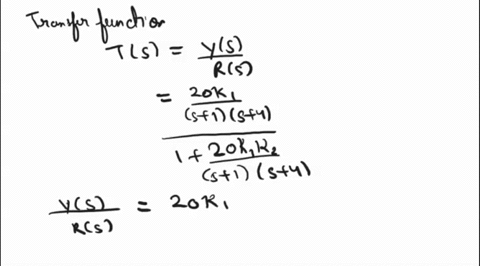 Transfer function
T(s) = Y(s)
R(s)
= 20K1
(s+1)(s+4)
1 + 20K1K2
(s+1)(s+4)
Y(s) = 20K1
R(s)